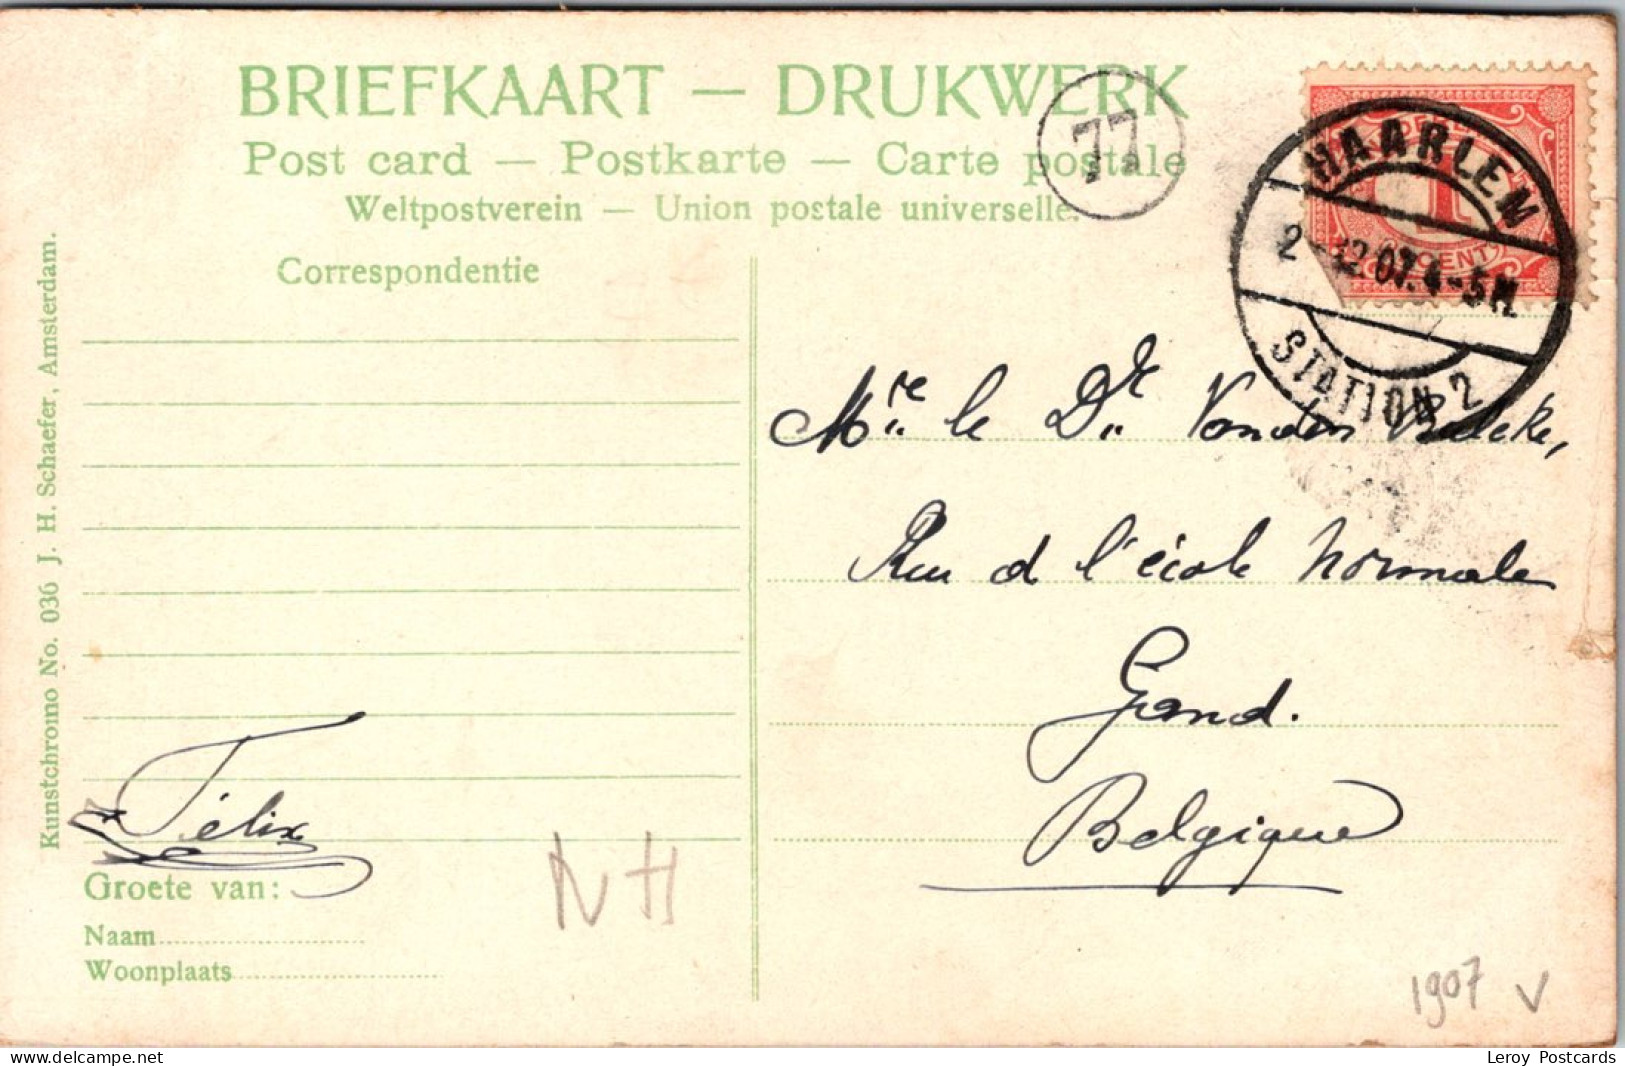 BRIEFKAART — DRUKWERK
Post card — Postkarte — Carte postale
Weltpostverein — Union postale universelle.
77
HAARLEM
2-12.07.4-5N.
STATION 2
CENT
Correspondentie
Mre le Dr Vanden
Rue de l'école normale
Gand.
Belgique
Félix
Groete van:
Naam
Woonplaats
NH
1907 V
Kunstchromo No. 036 J. H. Schaefer, Amsterdam.
delcampe.net
Leroy Postcards